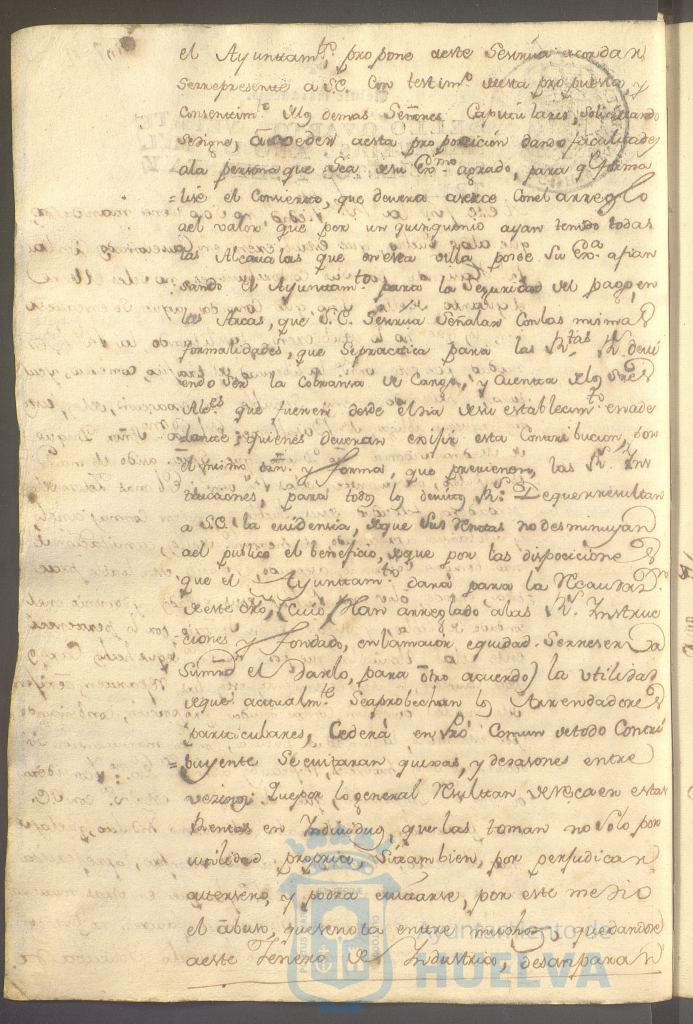 el Ayuntam.to propone a este Servira acordar
se represente a S.E. Con testim.o desta propuesta, y
Consentim.to delos demas Señores Capitulares, Solicitando
se digne, acceder aesta proposición dando facultades
ala persona que Sea desu Ex.mo agrado, para q.e forma
=lise el Convenio, que devera aserse Con el arreglo
del valor, que por un quinquenio ayan tenido todas
las Alcavalas que en esta villa posee Su Ex.a afian
sando el Ayuntam.to para la Seguridad del pago, en
las Arcas, que S.E. Servira Señalar Con las mismas
formalidades, que Se practica para las R.tas R.s devi
endo Ser la Cobransa de Cargo, y Cuenta delos Sres
Alc.es que fueren desde el dia desu establecim.to en ade
lante; quienes deveran exijir esta Contribucion, con
el mismo orn. y forma, que previenen, las R.s Ins
trucciones, para todos los demas R.s De que resultan
a S.E. la evidencia, deque Sus Rentas no desminuyan
ael publico el beneficio, deque por las disposiciones
que el Ayuntam.to dará para la Recaudaz.n
deeste dro, (Cuio Plan arreglado alas R.s Instruc
ciones y fondado, en la maior equidad Se reserva
Sumro el Darlo, para otro acuerdo) la utilidad
deque actualm.te Se aprobechan los Arrendadores
particulares, Cederá en Pro Comun detodo Contri
=buyente Se evitaran quexas, y desasones entre
vezinos Que por lo general Resultan de Recaer estas
Rentas en Individuos, que las toman no Solo por
utilidad propria, Si tambien, por perjudicar
atersero, y podra evitarse, por este medio
el abuso, que se nota entre muchos, que dandose
a este Jenero de Industrias, desanparan
Ayuntamiento de
HUELVA